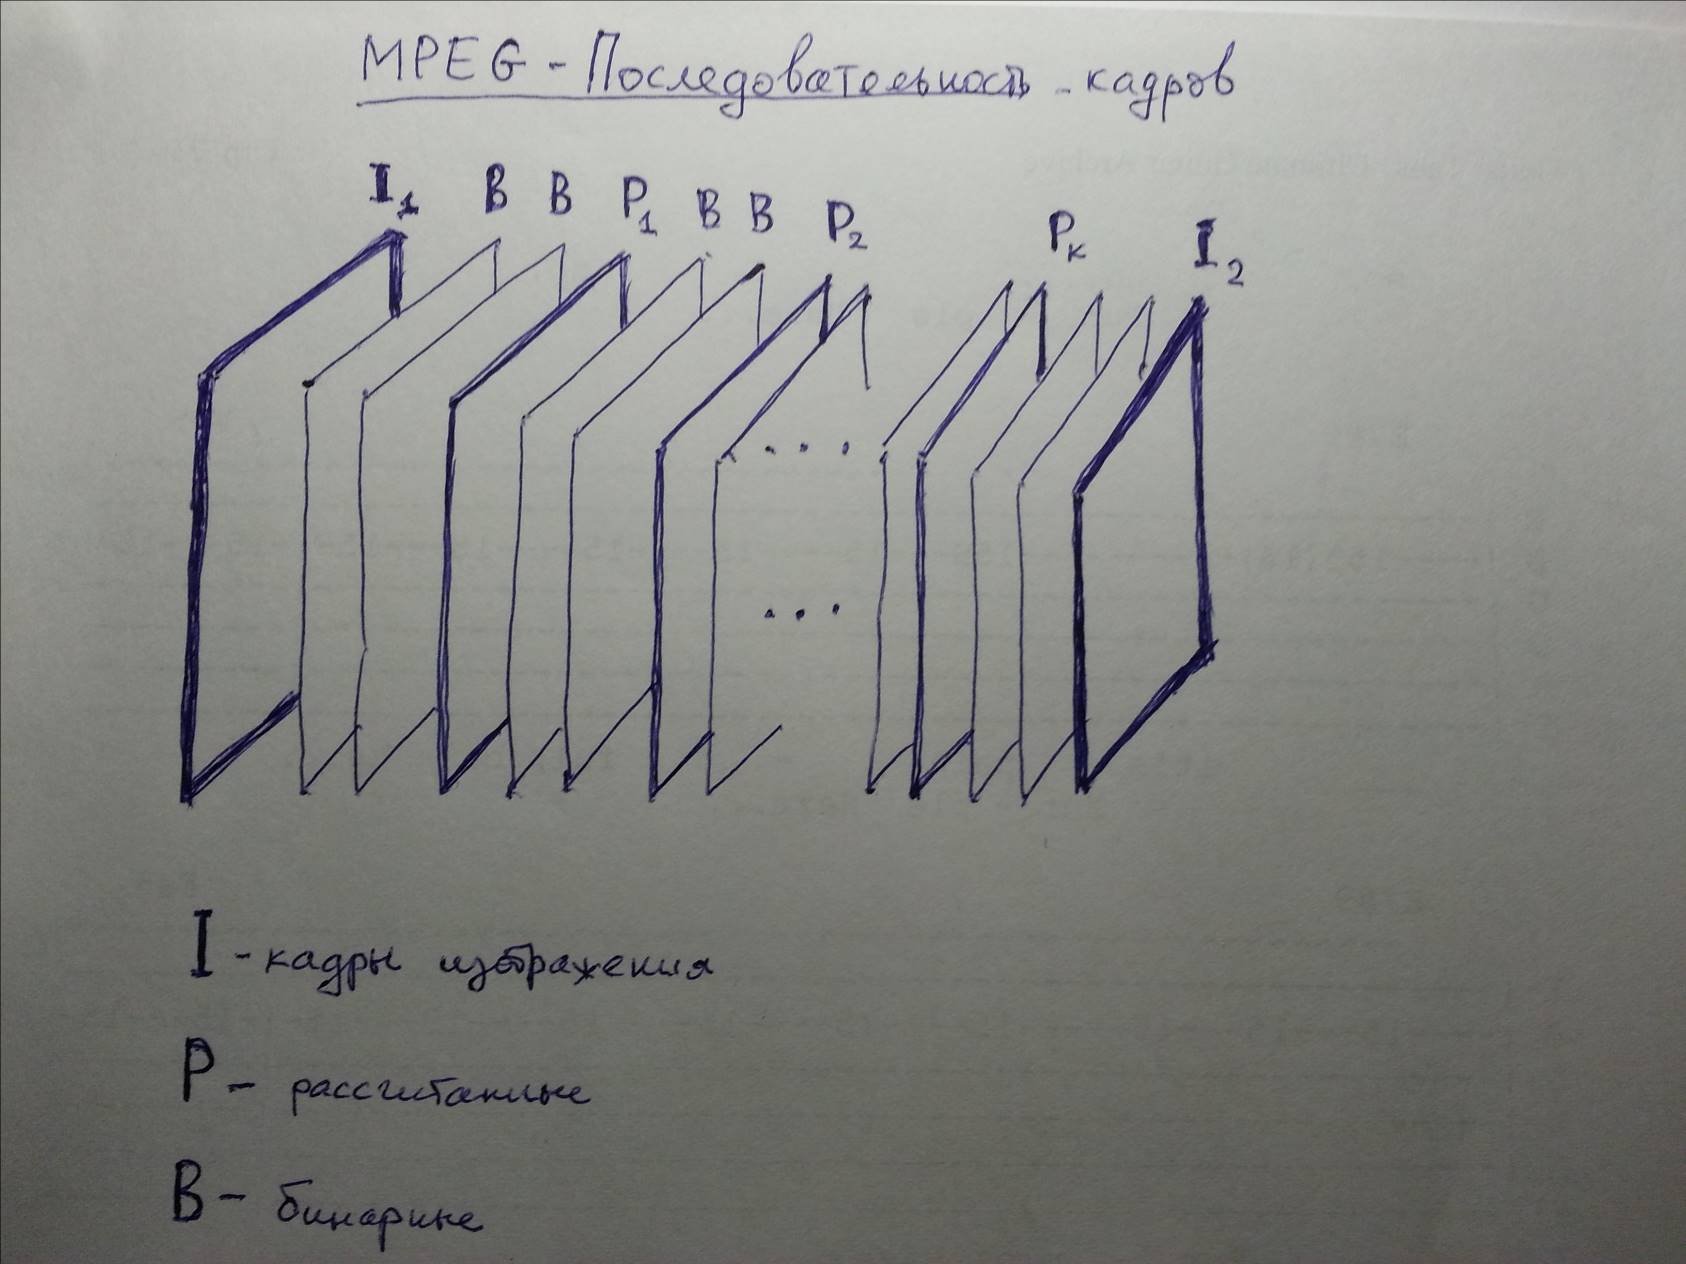 MPEG - Последовательность - кадров
I₁ B B P₁ B B P₂ Pₖ I₂
. . . .
. . .
I - кадры изображения
P - рассчитанные
B - бинарные